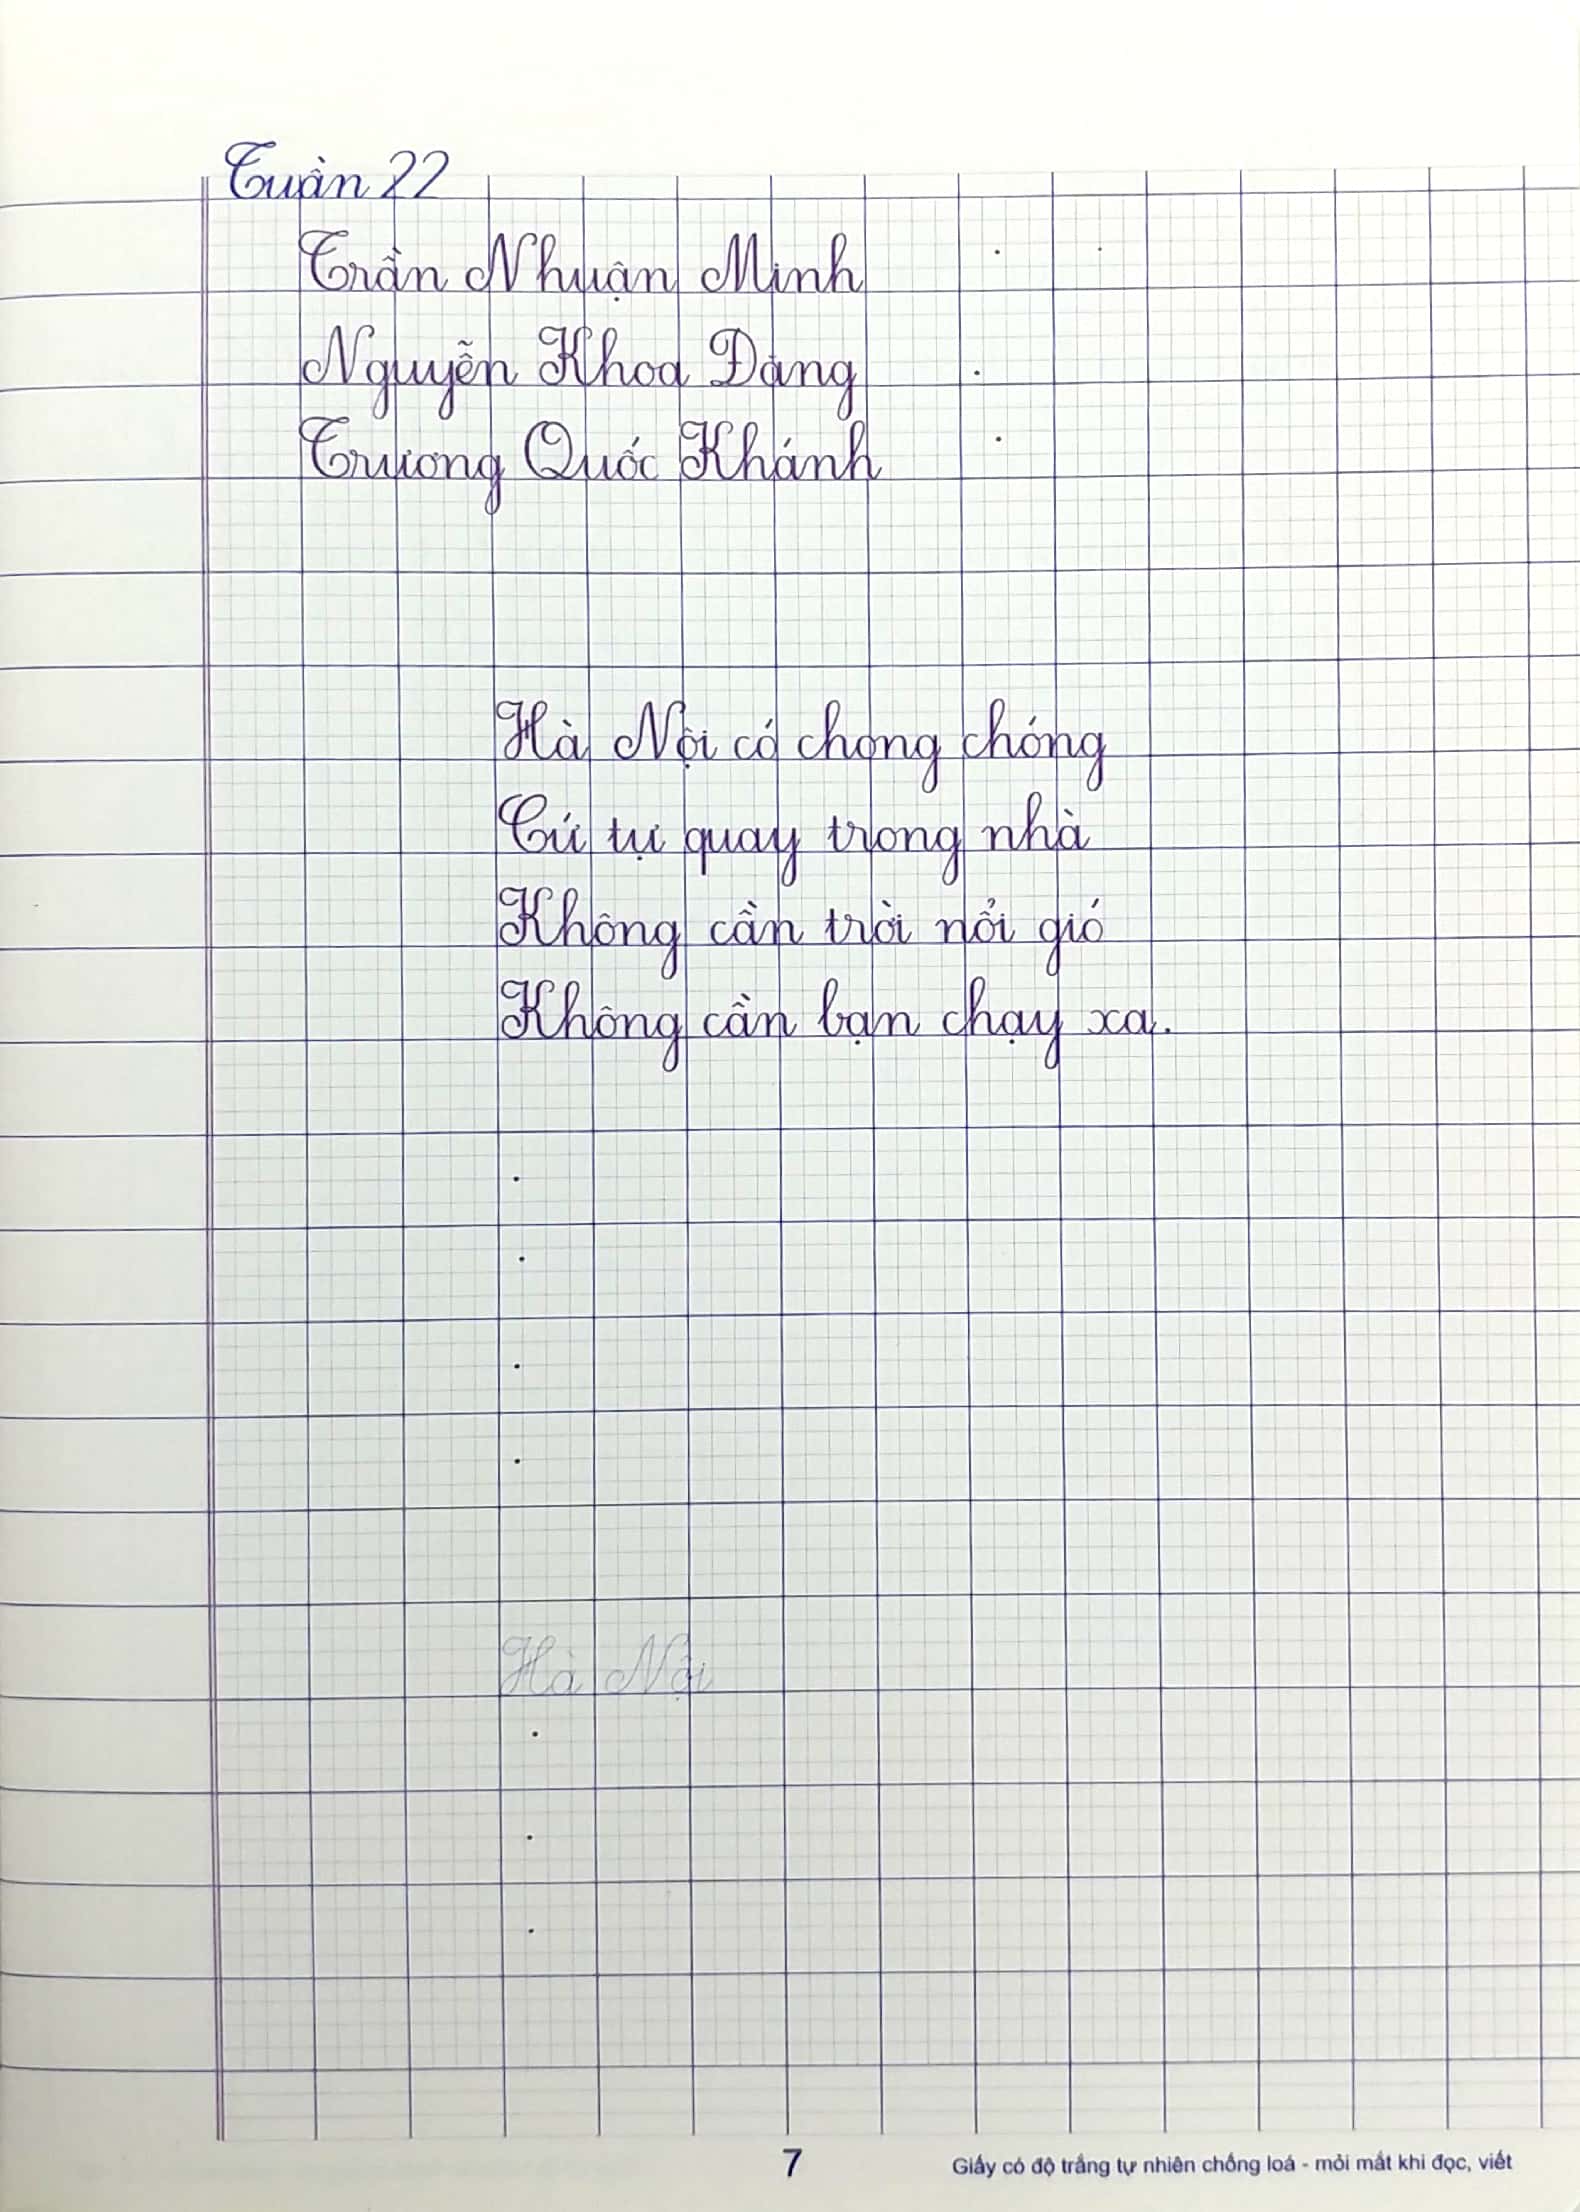 Tuần 22
Trần Nhuận Minh
Nguyễn Khoa Đăng
Trương Quốc Khánh
Hà Nội có chong chóng
Cứ tự quay trong nhà
Không cần trời nổi gió
Không cần bạn chạy xa.
Hà Nội
7
Giấy có độ trắng tự nhiên chống loá - mỏi mắt khi đọc, viết